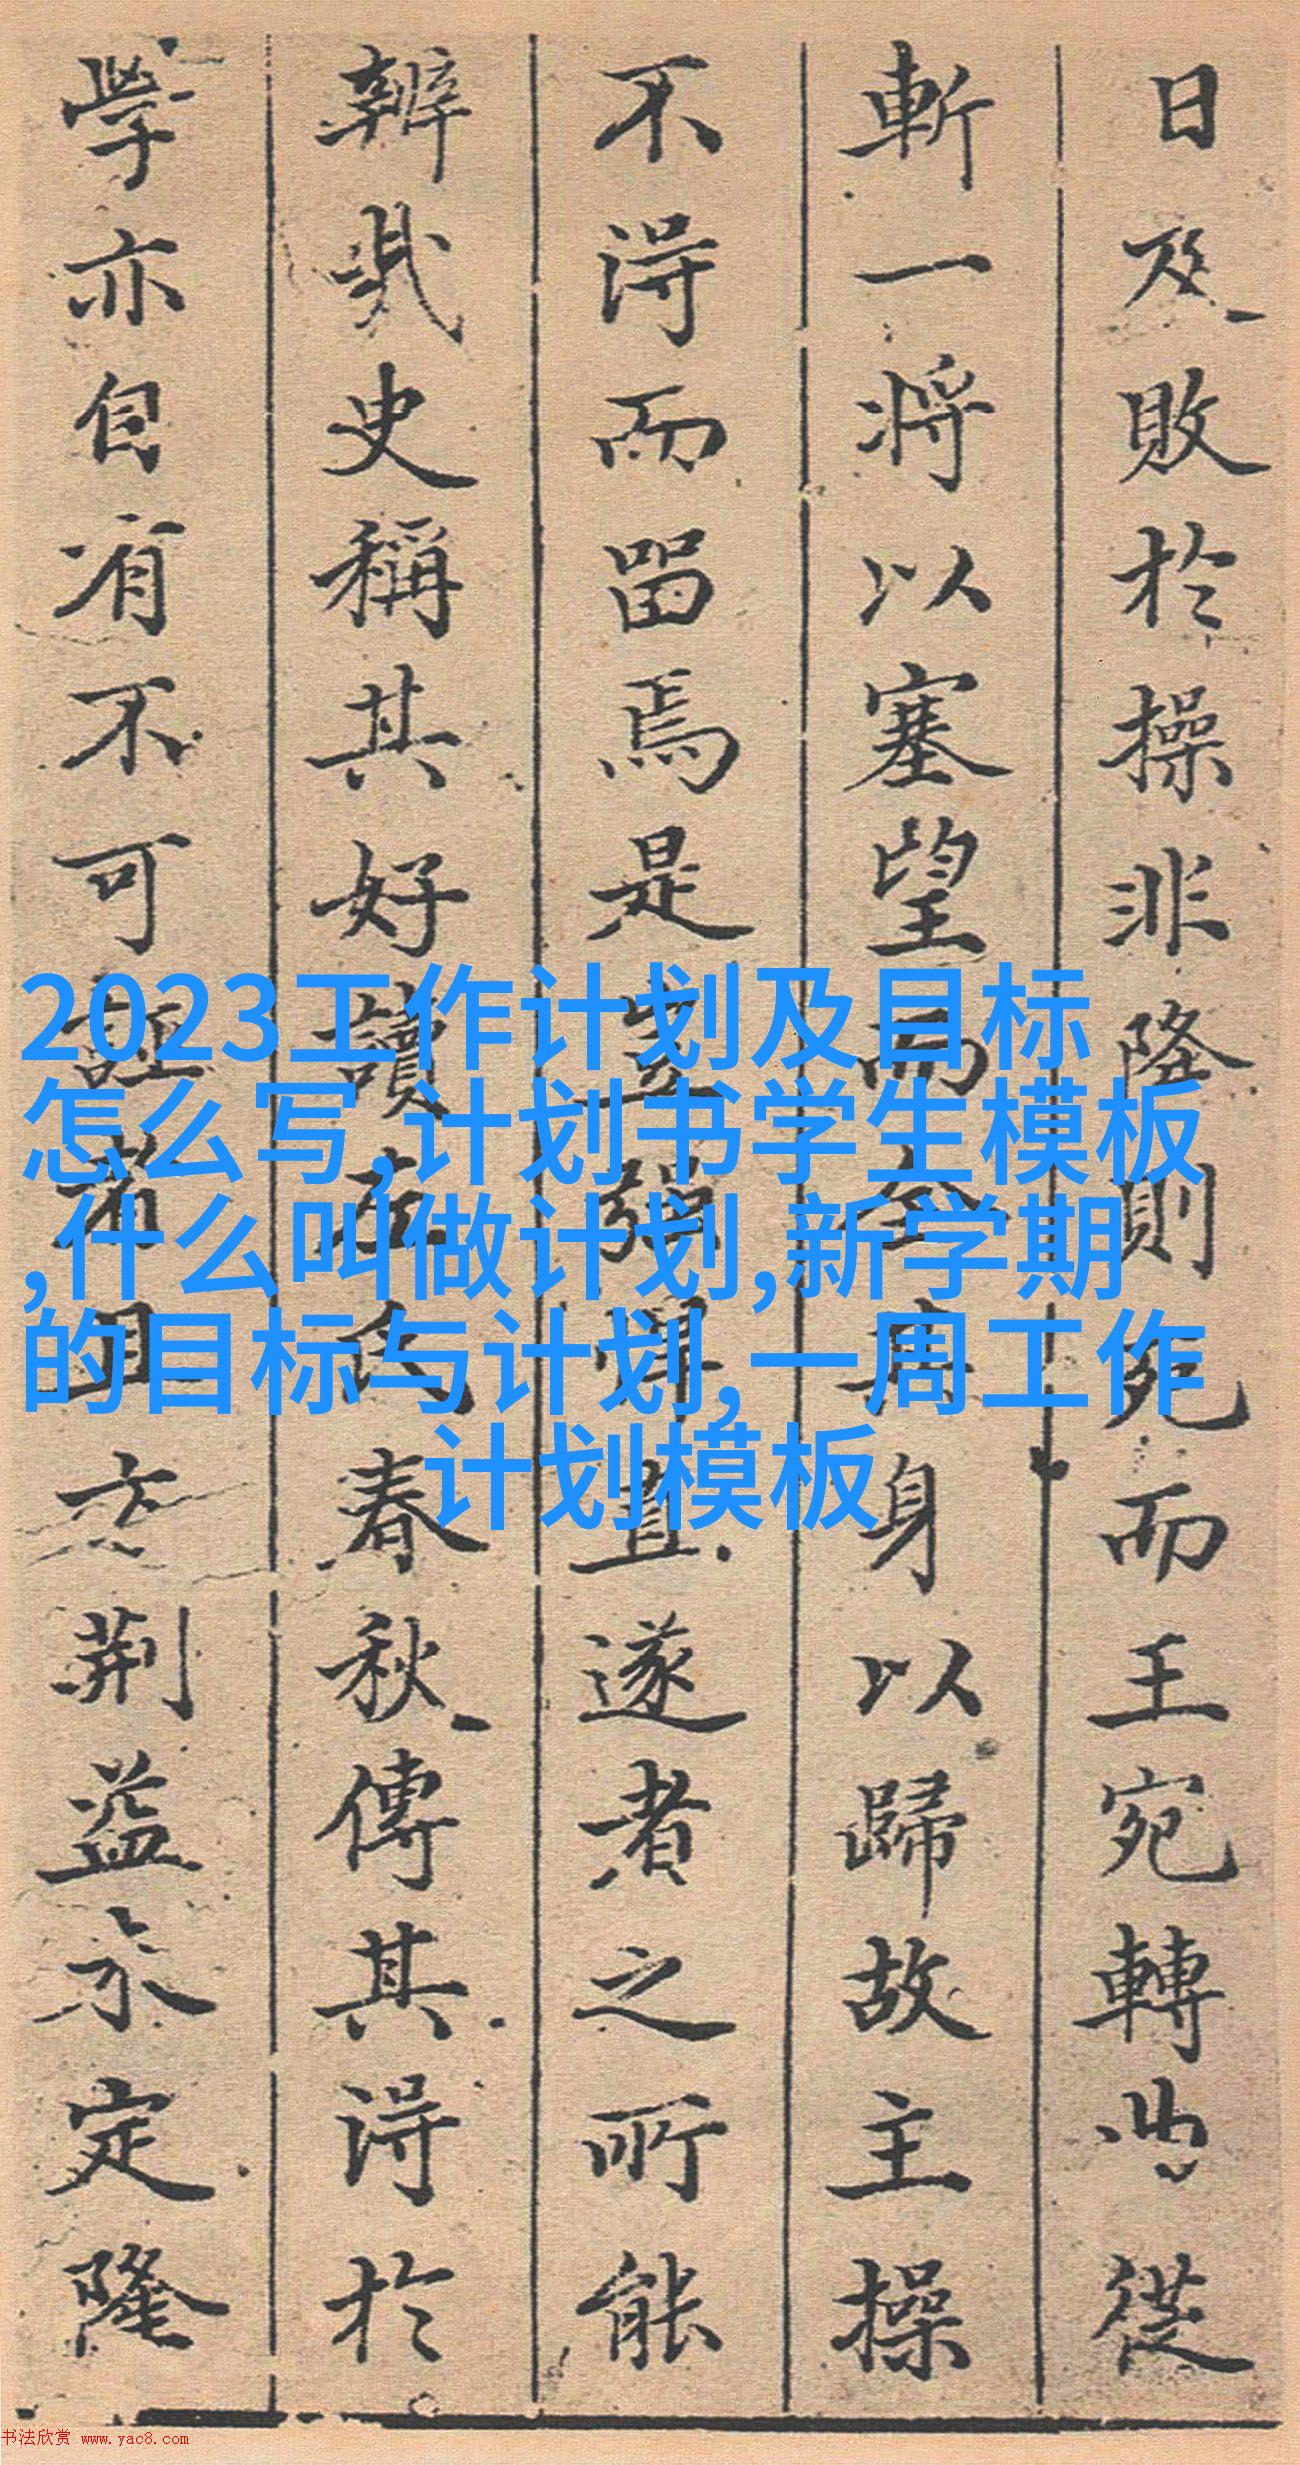 日及敗於操非隆則死而王宛轉從
斬一將以塞望而全其身以歸故主操
不得而留焉是豈強悍直遂者之所能
辨哉史稱其好讀左氏春秋傳其得於
學亦自有不可誣者且方荊益未定隆
2023工作计划及目标
怎么写,计划书学生模板
,什么叫做计划,新学期
的目标与计划,一周工作
计划模板
书法欣赏 www.yac8.com